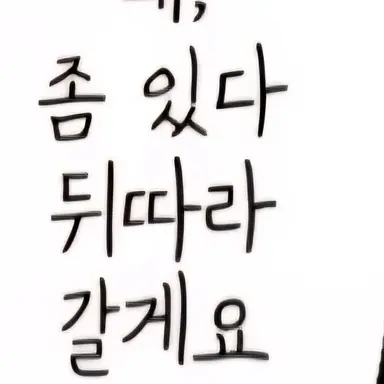 좀 있다
뒤따라
갈게요